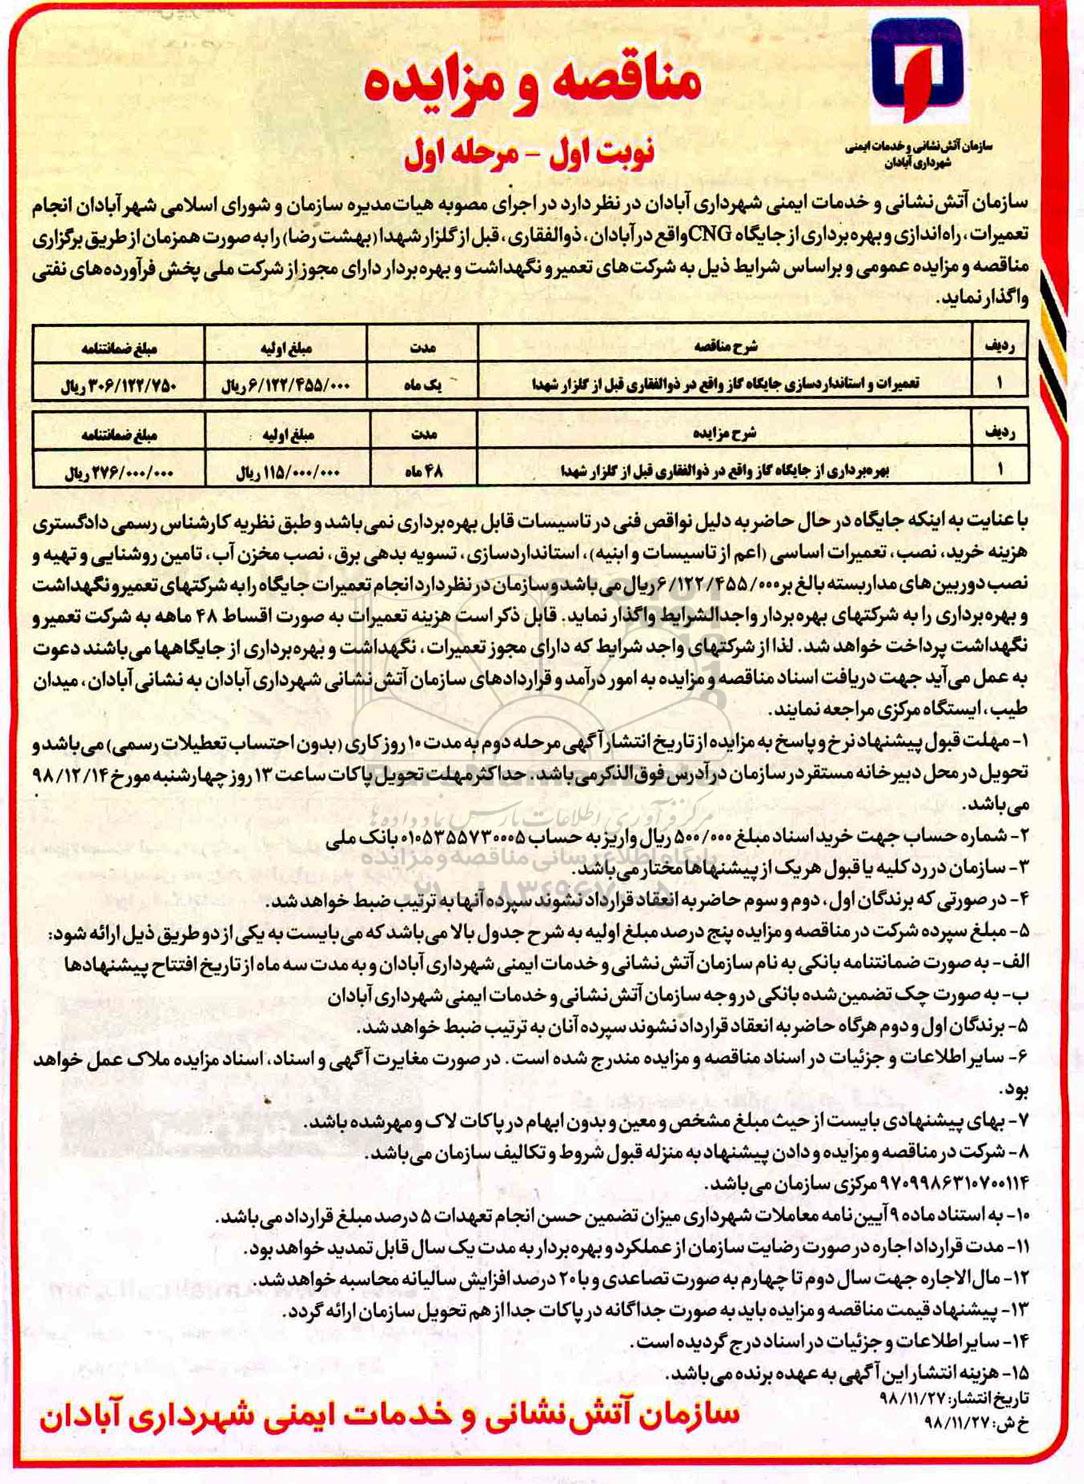 مناقصه و مزایده
نوبت اول - مرحله اول
سازمان آتش‌نشانی و خدمات ایمنی
شهرداری آبادان
سازمان آتش‌نشانی و خدمات ایمنی شهرداری آبادان در نظر دارد در اجرای مصوبه هیات‌مدیره سازمان و شورای اسلامی شهر آبادان انجام
تعمیرات، راه‌اندازی و بهره‌برداری از جایگاه CNG واقع در آبادان، ذوالفقاری، قبل از گلزار شهدا (بهشت رضا) را به صورت همزمان از طریق برگزاری
مناقصه و مزایده عمومی و براساس شرایط ذیل به شرکت‌های تعمیر و نگهداشت و بهره‌بردار دارای مجوز از شرکت ملی پخش فرآورده‌های نفتی
واگذار نماید.
ردیف شرح مناقصه مدت مبلغ اولیه مبلغ ضمانتنامه
۱ تعمیرات و استانداردسازی جایگاه گاز واقع در ذوالفقاری قبل از گلزار شهدا یک ماه ۶/۱۲۲/۴۵۵/۰۰۰ ریال ۳۰۶/۱۲۲/۷۵۰ ریال
ردیف شرح مزایده مدت مبلغ اولیه مبلغ ضمانتنامه
۱ بهره‌برداری از جایگاه گاز واقع در ذوالفقاری قبل از گلزار شهدا ۴۸ ماه ۱۱۵/۰۰۰/۰۰۰ ریال ۲۷۶/۰۰۰/۰۰۰ ریال
با عنایت به اینکه جایگاه در حال حاضر به دلیل نواقص فنی در تاسیسات قابل بهره‌برداری نمی‌باشد و طبق نظریه کارشناس رسمی دادگستری
هزینه خرید، نصب، تعمیرات اساسی (اعم از تاسیسات و ابنیه)، استانداردسازی، تسویه بدهی برق، نصب مخزن آب، تامین روشنایی و تهیه و
نصب دوربین‌های مداربسته بالغ بر ۶/۱۲۲/۴۵۵/۰۰۰ ریال می‌باشد و سازمان در نظر دارد انجام تعمیرات جایگاه را به شرکتهای تعمیر و نگهداشت
و بهره‌برداری را به شرکتهای بهره‌بردار واجدالشرایط واگذار نماید. قابل ذکر است هزینه تعمیرات به صورت اقساط ۴۸ ماهه به شرکت تعمیر و
نگهداشت پرداخت خواهد شد. لذا از شرکتهای واجد شرایط که دارای مجوز تعمیرات، نگهداشت و بهره‌برداری از جایگاهها می‌باشند دعوت
به عمل می‌آید جهت دریافت اسناد مناقصه و مزایده به امور درآمد و قراردادهای سازمان آتش‌نشانی شهرداری آبادان به نشانی آبادان، میدان
طیب، ایستگاه مرکزی مراجعه نمایند.
۱- مهلت قبول پیشنهاد نرخ و پاسخ به مزایده از تاریخ انتشار آگهی مرحله دوم به مدت ۱۰ روز کاری (بدون احتساب تعطیلات رسمی) می‌باشد و
تحویل در محل دبیرخانه مستقر در سازمان در آدرس فوق‌الذکر می‌باشد. حداکثر مهلت تحویل پاکات ساعت ۱۳ روز چهارشنبه مورخ ۹۸/۱۲/۱۴
می‌باشد.
۲- شماره حساب جهت خرید اسناد مبلغ ۵۰۰/۰۰۰ ریال واریز به حساب ۰۱۰۵۳۵۵۷۳۰۰۰۵ بانک ملی
۳- سازمان در رد کلیه یا قبول هر یک از پیشنهاها مختار می‌باشد.
۴- در صورتی که برندگان اول، دوم و سوم حاضر به انعقاد قرارداد نشوند سپرده آنها به ترتیب ضبط خواهد شد.
۵- مبلغ سپرده شرکت در مناقصه و مزایده پنج درصد مبلغ اولیه به شرح جدول بالا می‌باشد که می‌بایست به یکی از دو طریق ذیل ارائه شود:
الف- به صورت ضمانتنامه بانکی به نام سازمان آتش‌نشانی و خدمات ایمنی شهرداری آبادان و به مدت سه ماه از تاریخ افتتاح پیشنهادها
ب- به صورت چک تضمین‌شده بانکی در وجه سازمان آتش‌نشانی و خدمات ایمنی شهرداری آبادان
۵- برندگان اول و دوم هرگاه حاضر به انعقاد قرارداد نشوند سپرده آنان به ترتیب ضبط خواهد شد.
۶- سایر اطلاعات و جزئیات در اسناد مناقصه و مزایده مندرج شده است. در صورت مغایرت آگهی و اسناد، اسناد مزایده ملاک عمل خواهد
بود.
۷- بهای پیشنهادی بایست از حیث مبلغ مشخص و معین و بدون ابهام در پاکات لاک و مهر شده باشد.
۸- شرکت در مناقصه و مزایده و دادن پیشنهاد به منزله قبول شروط و تکالیف سازمان می‌باشد.
۹۷۰۹۹۸۶۳۱۰۷۰۰۱۱۴ مرکزی سازمان می‌باشد.
۱۰- به استناد ماده ۹ آیین‌نامه معاملات شهرداری میزان تضمین حسن انجام تعهدات ۵ درصد مبلغ قرارداد می‌باشد.
۱۱- مدت قرارداد اجاره در صورت رضایت سازمان از عملکرد و بهره‌بردار به مدت یک سال قابل تمدید خواهد بود.
۱۲- مال‌الاجاره جهت سال دوم تا چهارم به صورت تصاعدی و با ۲۰ درصد افزایش سالیانه محاسبه خواهد شد.
۱۳- پیشنهاد قیمت مناقصه و مزایده باید به صورت جداگانه در پاکات جدا از هم تحویل سازمان ارائه گردد.
۱۴- سایر اطلاعات و جزئیات در اسناد درج گردیده است.
۱۵- هزینه انتشار این آگهی به عهده برنده می‌باشد.
تاریخ انتشار: ۹۸/۱۱/۲۷
خ ش: ۹۸/۱۱/۲۷
سازمان آتش‌نشانی و خدمات ایمنی شهرداری آبادان
مرکز فرآوری اطلاعات پارس نماد داده‌ها
پایگاه اطلاع رسانی مناقصه و مزایده